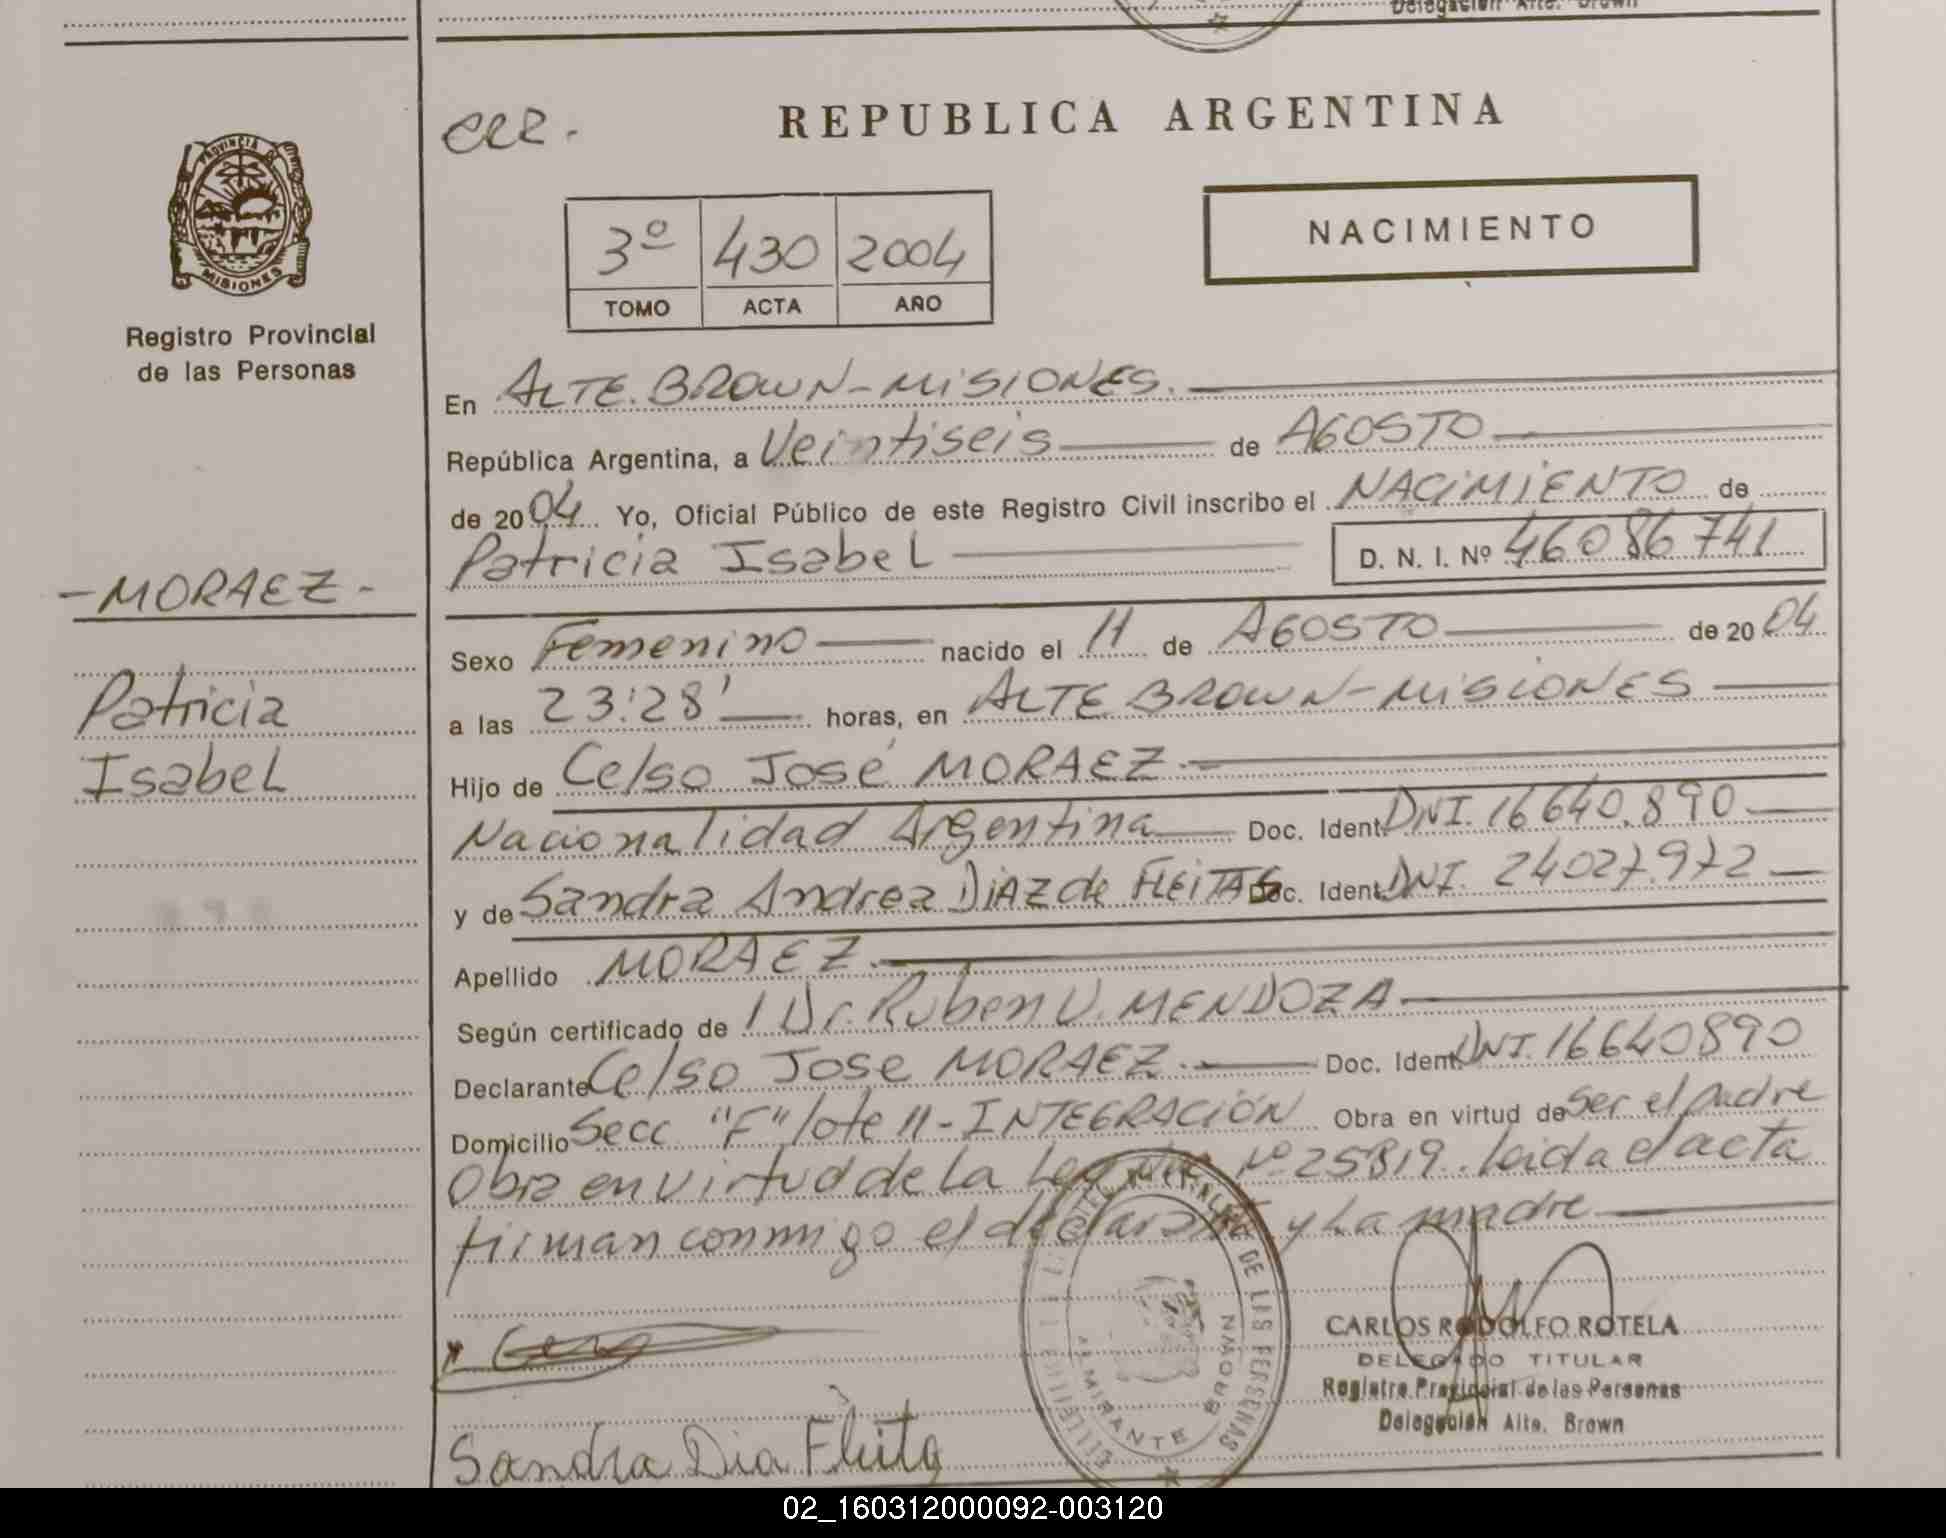 Delegación Alte. Brown
ccz.
REPUBLICA ARGENTINA
PROVINCIA DE
MISIONES
Registro Provincial
de las Personas
3º 430 2004
TOMO ACTA AÑO
NACIMIENTO
En ALTE. BROWN-MISIONES.
República Argentina, a Veintiseis de AGOSTO
de 2004 Yo, Oficial Público de este Registro Civil inscribo el NACIMIENTO de
Patricia Isabel D. N. I. Nº 46086741
-MORAEZ-
Patricia
Isabel
Sexo Femenino nacido el 11 de AGOSTO de 2004
a las 23:28' horas, en ALTE BROWN-MISIONES
Hijo de Celso José MORAEZ.
Nacionalidad Argentina Doc. Ident. DNI. 16640.890
y de Sandra Andrea DIAZ de FLEITAS Doc. Ident. DNI. 24027.972
Apellido MORAEZ.
Según certificado de Dr. Ruben V. MENDOZA
Declarante Celso Jose MORAEZ. Doc. Ident. DNI. 16640890
Domicilio Secc "F" lote 11-INTEGRACIÓN Obra en virtud de ser el padre
Obra en virtud de la Ley Nº 25819. Leida el acta
firman conmigo el declarante y La madre
CARLOS RODOLFO ROTELA
DELEGADO TITULAR
Registro Provincial de las Personas
Delegación Alte. Brown
DE LAS PERSONAS
ALMIRANTE BROWN
Sandra Dia Fleita
02_160312000092-003120